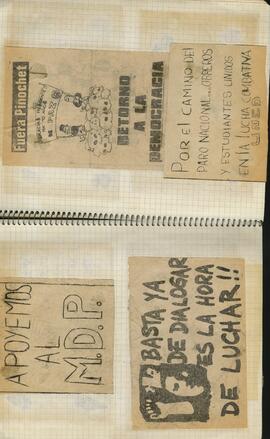 Fuera Pinochet
RETORNO
A LA
DEMOCRACIA
POR EL CAMINO DEL
PARO NACIONAL...OBREROS
Y ESTUDIANTES UNIDOS
EN LA LUCHA COMBATIVA
APOYEMOS
AL
M.D.P.
BASTA YA
DE DIALOGAR
ES LA HORA
DE LUCHAR!!